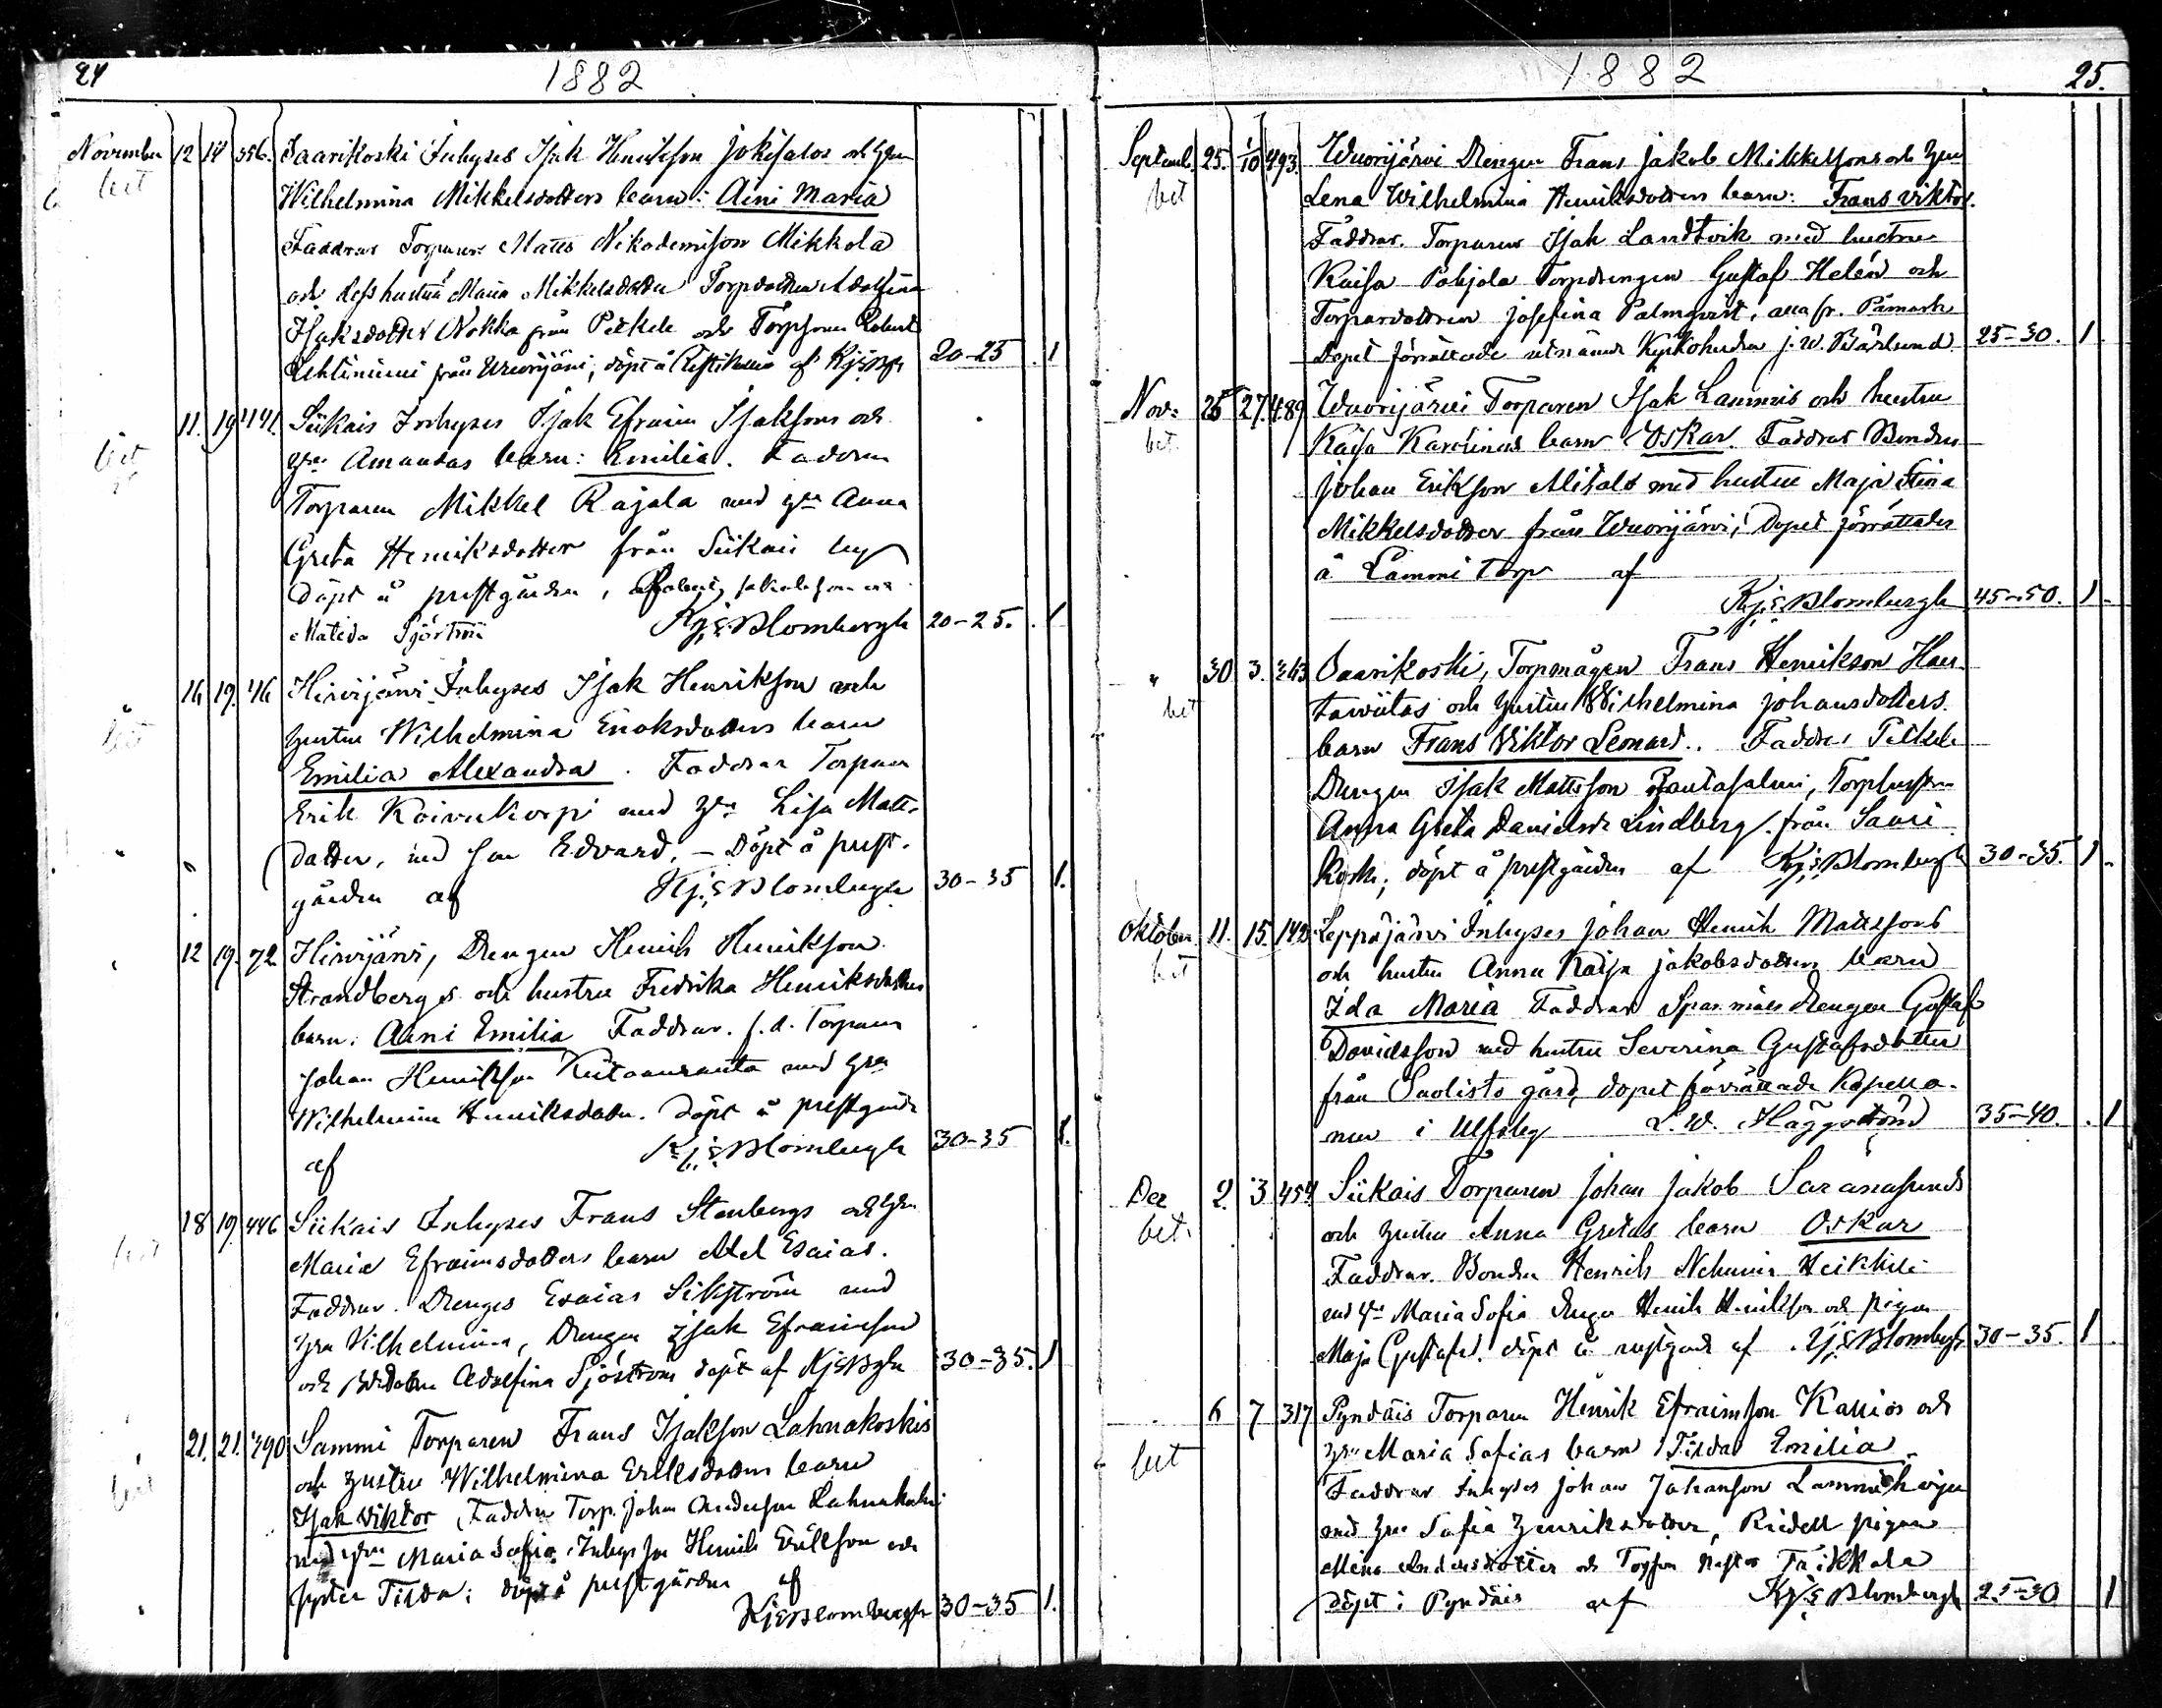 24
1882
November 12 14 356. Saarikoski Inhyses Isak Henrikson Jokisalos och hru
bet Wilhelmina Mikkelsdotters barn: Aini Maria
Faddrar Torparen Matts Nikodemison Mikkola
och dess hustru Maria Mikkelsdotter Torpdottren Adolfina
Isaksdotter Nokka från Petkele och Torpsonen Robert
Lehtiniemi från Wuorijärvi, döpt å af KjEBgh 20-25 1
11. 19 441. Siikais Inhyses Isak Efraim Isaksons och
bet hru Amandas barn: Emilia. Faddrar
Torparen Mikkel Rajala med hru Anna
Greta Henriksdotter från Siikais by
döpt å prestgården,
Matilda Sjöström KjEBlombergh 20-25. 1
16 19. 46 Hirvijärvi Inhyses Isak Henrikson och
bet hustru Wilhelmina Enoksdotters barn
Emilia Alexandra. Faddrar Torparen
Erik Koivukorpi med hru Lisa Matts
dotter, med son Edvard. - Döpt å prest-
gården af KjEBlombergh 30-35 1.
12 19. 72 Hirvijärvi, Drengen Henrik Henrikson
Strandbergs och hustru Fredrika Henriksdotters
barn: Aini Emilia Faddrar. f.d. Torparen
Johan Henrikson med hru
Wilhelmina Henriksdotter. Döpt å prestgården
af KjEBlombergh 30-35 1.
18 19. 446 Siikais Inhyses Frans Stenbergs och hru
bet Maria Efraimsdotters barn Axel Esaias.
Faddrar. Drenges Esaias Sikström med
hru Vilhelmina, Drengen Isak Efraimson
och Adolfina Sjöström döpt af KjEBgh 30-35. 1
21. 21. 390 Sammi Torparen Frans Isakson Lahnakoskis
bet och hustru Wilhelmina Eriksdotters barn
Isak Viktor Faddrar Torp. Johan Anderson Lahnakoski
med hru Maria Sofia, Inhys son Henrik Erikson och
syster Tilda: döpt å prestgården af
KjEBlombergh 30-35 1.
1882
25.
Septemb. 25. 1/10 493. Wuorijärvi Drengen Frans Jakob Mikkelsons och hru
bet Lena Wilhelmina Henriksdotters barn: Frans Viktor.
Faddrar. Torparen Isak Landtvik med hustru
Kaisa Pohjola Torpdrengen Gustaf Helén och
Torpardottren Josefina Palmqvist, alla fr. Påmark
Dopet förrättade utnämnde Kyrkoherden J. W. Bärlund. 25-30. 1
Nov: 25 27. 489 Wuorijärvi Torparen Isak Lammis och hustru
bet. Kaisa Karolinas barn Oskar. Faddrar Bonden
Johan Erikson Alitalo med hustru Maja Stina
Mikkelsdotter från Wuorijärvi, Dopet förrättades
å Lammi torp af
KjEBlombergh 45-50. 1
" 30 3. 363 Saarikoski, Torpmågen Frans Henrikson
bet och hustru Wilhelmina Johansdotters
barn Frans Viktor Leonard. Faddrar Petkele
Drengen Isak Mattsson Rautasalmi, Torphustrun
Anna Greta Danielsdr Lindberg från Saari
koski; döpt å prestgården af KjEBlombergh 30-35. 1
Oktober 11. 15. 142 Leppäjärvi Inhyses Johan Henrik Mattssons
bet och hustru Anna Kaisa Jakobsdotters barn
Ida Maria Faddrar Drengen Gustaf
Davidsson med hustru Severina Gustafsdotter
från Saolisto gård, dopet förrättade Kapella-
nen i Ulfsby L. W. Häggström 35-40. 1
Dec 2. 3 454. Siikais Torparen Johan Jakob
bet. och hustru Anna Gretas barn Oskar
Faddrar. Bonden Henrik Heikkilä
med hru Maria Sofia Drengen Henrik Henrikson och pigan
Maja Gustafsd. döpt å prestgård af KjEBlombergh 30-35. 1
6 7 317 Pyndäis Torparen Henrik Efraimson Kallios och
bet hru Maria Sofias barn Tilda Emilia.
Faddrar Inhyses Johan Johanson
med hru Sofia Henriksdotter, Riedell pigan
Mina Andersdotter och Torpson Nestor Taikkala
döpt i Pyndäis af KjEBlombergh 25-30 1